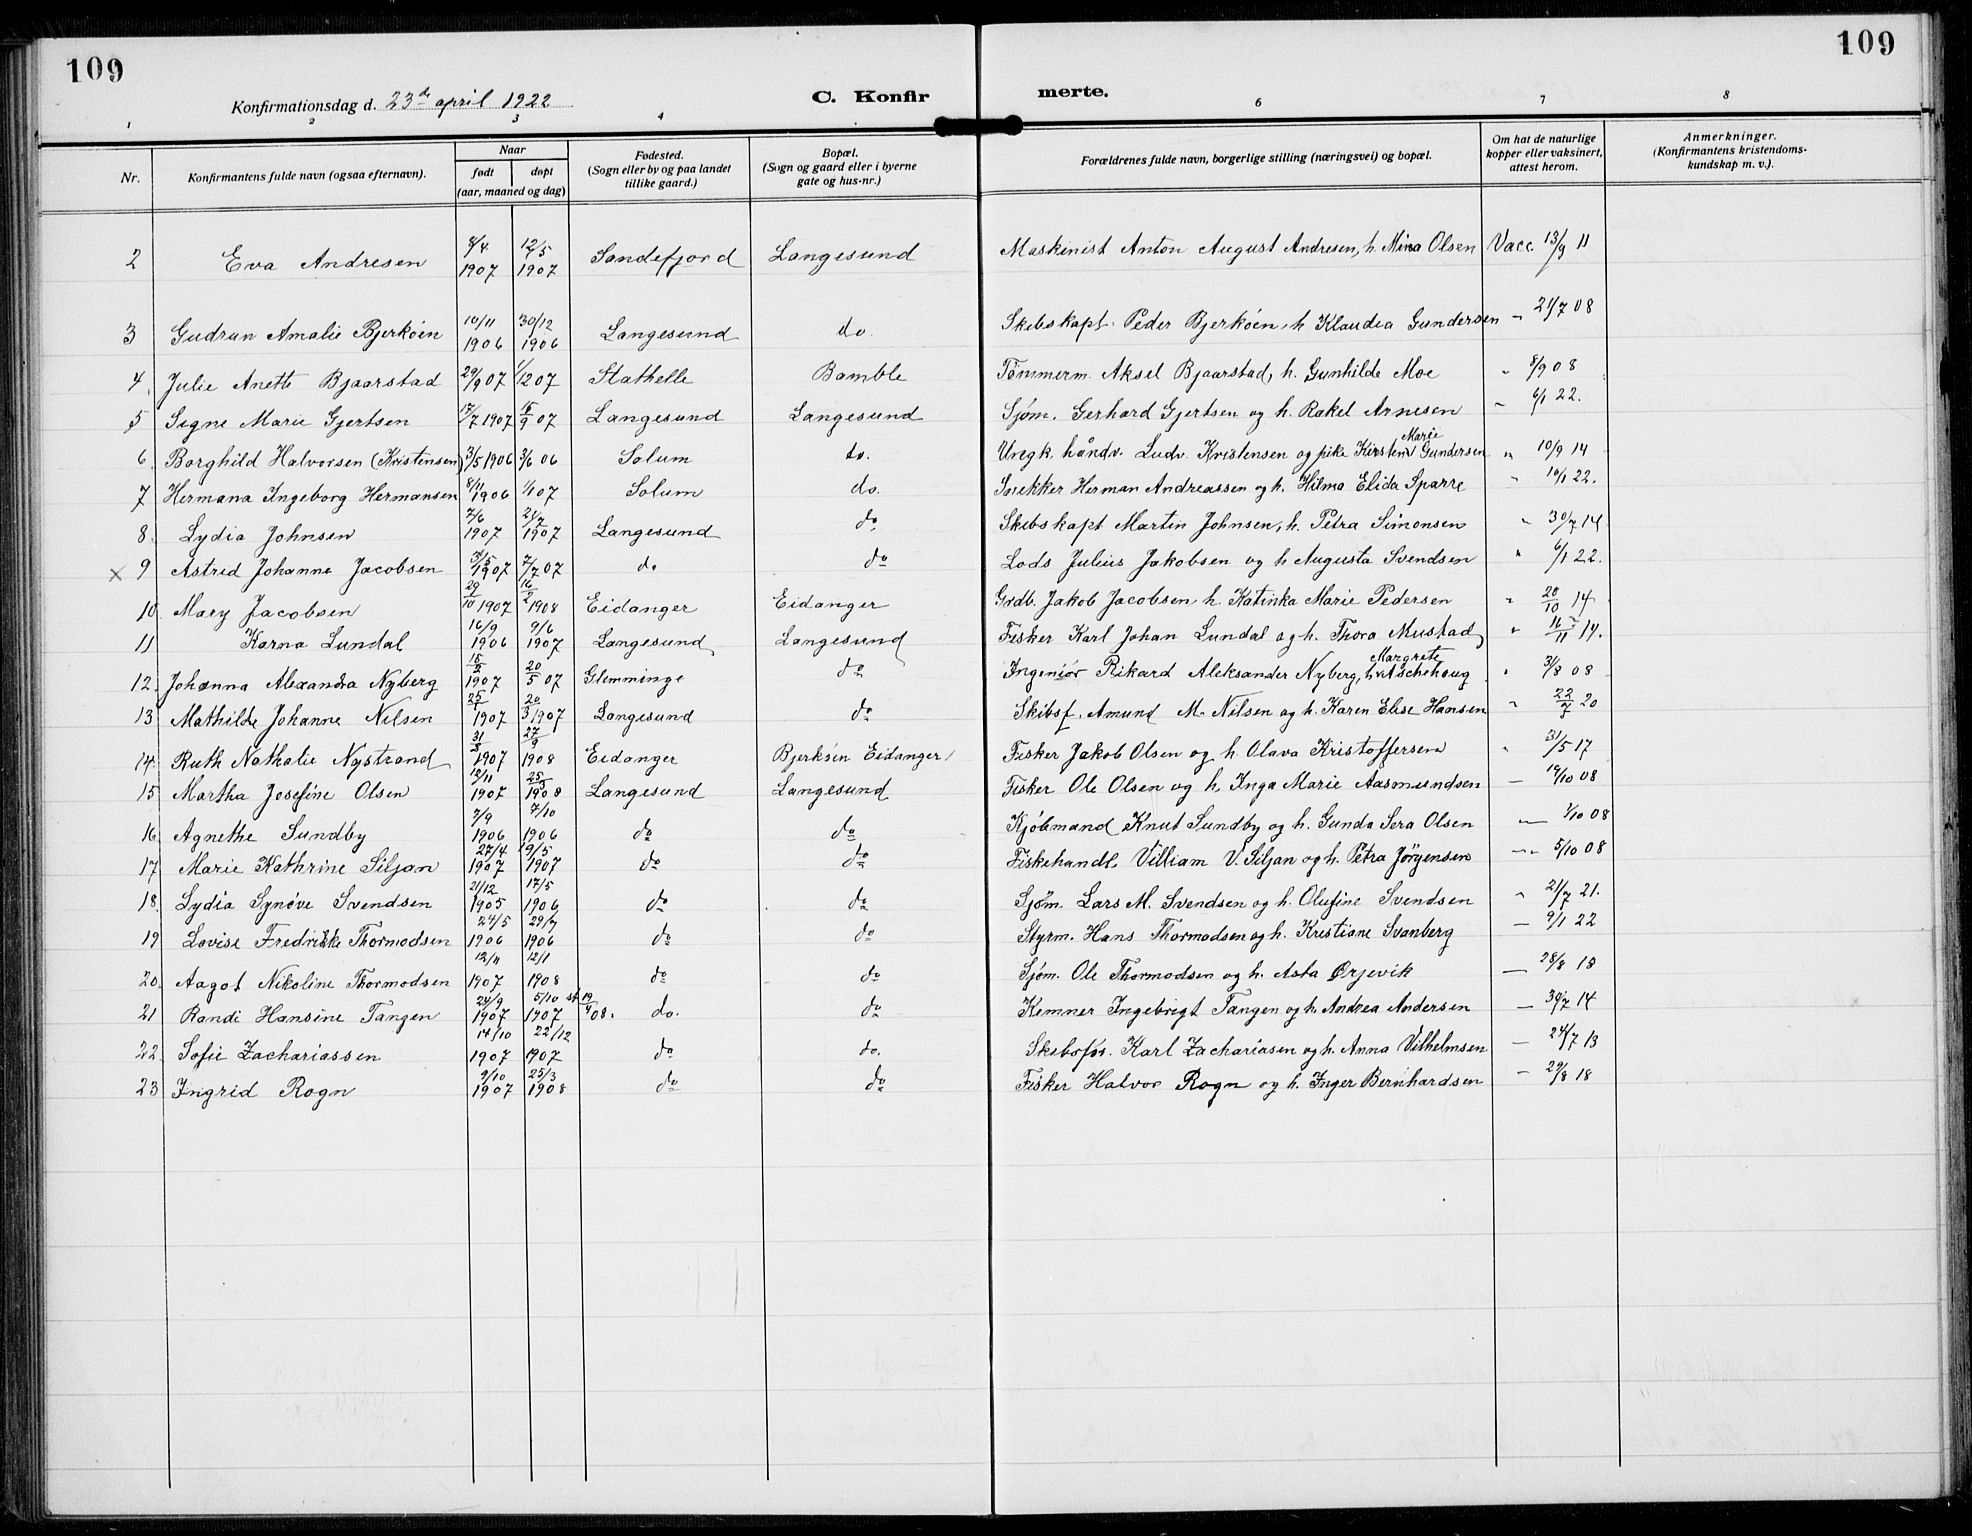 109
109
Konfirmationsdag d. 23de april 1922
C. Konfirmerte.
1 2 3 4 6 7 8
Nr. Konfirmantens fulde navn (ogsaa efternavn). Naar født døpt (aar, maaned og dag) Fødested. (Sogn eller by og paa landet tillike gaard.) Bopæl. (Sogn og gaard eller i byerne gate og hus-nr.) Forældrenes fulde navn, borgerlige stilling (næringsvei) og bopæl. Om hat de naturlige kopper eller vaksinert, attest herom. Anmerkninger. (Konfirmantens kristendoms-kundskap m. v.).
2 Eva Andresen 8/4 1907 12/5 1907 Sandefjord Langesund Maskinist Anton August Andresen, h. Mina Olsen Vacc. 13/9 11
3 Gudrun Amalie Bjerköen 10/11 1906 30/12 1906 Langesund do. Skibskapt. Peder Bjerköen, h Klaudia Gundersen " 21/7 08
4. Julie Anette Bjaarstad 29/9 07 1/12 07 Stathelle Bamble Tömmerm. Aksel Bjaarstad, h. Gunhilde Moe " 8/9 08
5 Signe Marie Gjertsen 17/7 1907 15/9 07 Langesund Langesund Sjøm. Gerhard Gjertsen og h. Rakel Arnesen " 6/1 22.
6. Borghild Halvorsen (Kristensen) 3/5 1906 3/6 06 Solum do. Ungk. håndv. Ludv. Kristensen og pike Kirsten Marie Gundersen " 10/9 14
7 Hermana Ingeborg Hermansen 8/11 1906 1/1 07 Solum do. Snekker Herman Andreassen og h. Hilma Elida Sparre " 10/1 22.
8. Lydia Johnsen 7/6 1907 21/7 1907 Langesund do Skibskapt Martin Johnsen, h. Petra Simonsen " 30/7 14
× 9 Astrid Johanne Jacobsen 31/5 1907 7/7 07 do do Lods Julius Jakobsen og h Augusta Svendsen " 6/1 22.
10. Mary Jacobsen 29/10 1907 16/2 1908 Eidanger Eidanger Grdb. Jakob Jacobsen h. Katinka Marie Pedersen " 20/10 14
11 Karna Lundal 16/9 1906 9/6 1907 Langesund Langesund Fisker Karl Johan Lundal og h. Thora Mustad " 16/11 14.
12. Johanna Alexandra Nyberg 15/2 1907 20/5 07 Glemminge do Ingeniör Rikard Aleksander Nyberg, h. Margrete Aschehoug " 31/8 08
13 Mathilde Johanne Nilsen 25/1 1907 20/3 1907 Langesund do Skibsf. Amund M. Nilsen og h. Karen Elise Hansen " 22/7 20
14 Ruth Nathalie Nystrand 31/8 1907 27/9 1908 Eidanger Bjerköen Eidanger Fisker Jakob Olsen og h. Olava Kristoffersen " 31/5 17
15 Martha Josefine Olsen 12/11 1907 1908 Langesund Langesund Fisker Ole Olsen og h Inga Marie Aasmundsen — 19/10 08
16. Agnethe Sundby 7/9 1906 7/10 1906 do do Kjöbmand Knut Sundby og h. Gunda Sera Olsen — 1/10 08
17. Marie Kathrine Siljan 27/4 1907 19/5 1907 do do Fiskehandl. Villiam V. Siljan og h. Petra Jörgensen — 5/10 08
18. Lydia Synöve Svendsen 21/12 1905 17/5 1906 do do Sjøm. Lars M. Svendsen og h. Olufine Svendsen " 21/7 21.
19 Lovise Fredrikke Thormodsen 24/5 1906 29/7 1906 do do Styrm. Hans Thormodsen og h. Kristiane Svanberg — 9/1 22
20. Aagot Nikoline Thormodsen 12/11 1907 12/1 1908 do do Sjøm. Ole Thormodsen og h. Asta Ørjevik — 28/8 18
21 Randi Hansine Tangen 24/9 1907 5/10 1907 st. 19/4 08. do. do Kemner Ingebrigt Tangen og h. Andrea Andersen — 30/7 14
22. Sofie Zachariassen 14/10 1907 22/12 1907 do do. Skibsfør. Karl Zachariasen og h. Anna Vilhelmsen — 24/7 13
23 Ingrid Rogn 9/10 1907 25/3 1908 do do Fisker Halvor Rogn og h. Inger Bernhardsen — 29/8 18